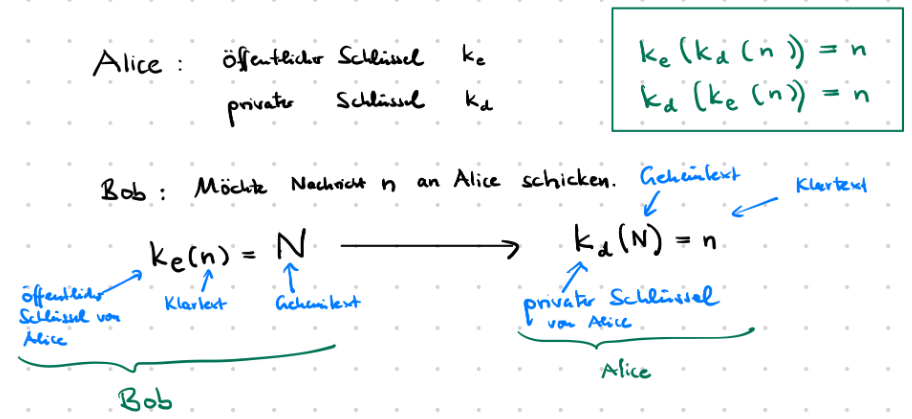 Alice : öffentlicher Schlüssel kₑ
privater Schlüssel k_d
kₑ(k_d(n)) = n
k_d(kₑ(n)) = n
Bob : Möchte Nachricht n an Alice schicken.
Geheimtext
Klartext
kₑ(n) = N ⟶ k_d(N) = n
öffentlicher
Schlüssel von
Alice
Klartext
Geheimtext
privater Schlüssel
von Alice
Bob
Alice